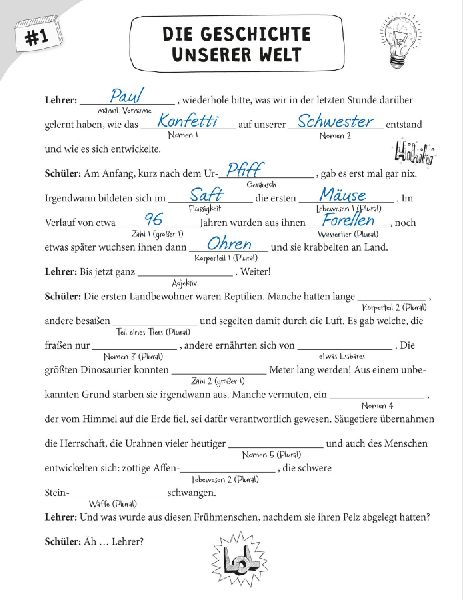 #1
DIE GESCHICHTE
UNSERER WELT
Lehrer: Paul, wiederhole bitte, was wir in der letzten Stunde darüber
männl. Vorname
gelernt haben, wie das Konfetti auf unserer Schwester entstand
Nomen 1 Nomen 2
und wie es sich entwickelte.
Schüler: Am Anfang, kurz nach dem Ur-Pfiff, gab es erst mal gar nix.
Geräusch
Irgendwann bildeten sich im Saft die ersten Mäuse. Im
Flüssigkeit Lebewesen 1 (Plural)
Verlauf von etwa 96 Jahren wurden aus ihnen Forellen, noch
Zahl 1 (größer 1) Wassertier (Plural)
etwas später wuchsen ihnen dann Ohren und sie krabbelten an Land.
Körperteil 1 (Plural)
Lehrer: Bis jetzt ganz . Weiter!
Adjektiv
Schüler: Die ersten Landbewohner waren Reptilien. Manche hatten lange ,
Körperteil 2 (Plural)
andere besaßen und segelten damit durch die Luft. Es gab welche, die
Teil eines Tiers (Plural)
fraßen nur , andere ernährten sich von . Die
Nomen 3 (Plural) etwas Essbares
größten Dinosaurier konnten Meter lang werden! Aus einem unbe-
Zahl 2 (größer 1)
kannten Grund starben sie irgendwann aus. Manche vermuten, ein ,
Nomen 4
der vom Himmel auf die Erde fiel, sei dafür verantwortlich gewesen. Säugetiere übernahmen
die Herrschaft, die Urahnen vieler heutiger und auch des Menschen
Nomen 5 (Plural)
entwickelten sich: zottige Affen- , die schwere
Lebewesen 2 (Plural)
Stein- schwangen.
Waffe (Plural)
Lehrer: Und was wurde aus diesen Frühmenschen, nachdem sie ihren Pelz abgelegt hatten?
Schüler: Ah … Lehrer?
LOL